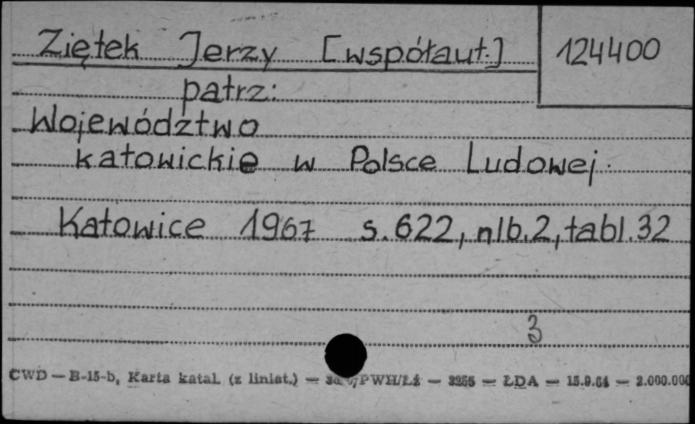 Ziętek Jerzy [współaut.] 124400
patrz:
Województwo
katowickie w Polsce Ludowej.
Katowice 1967 s.622, nlb.2, tabl.32
3
CWD — B-15-b, Karta katal. (z liniat.) — PWH/Łź — 3255 — ŁDA — 15.9.64 — 2.000.000